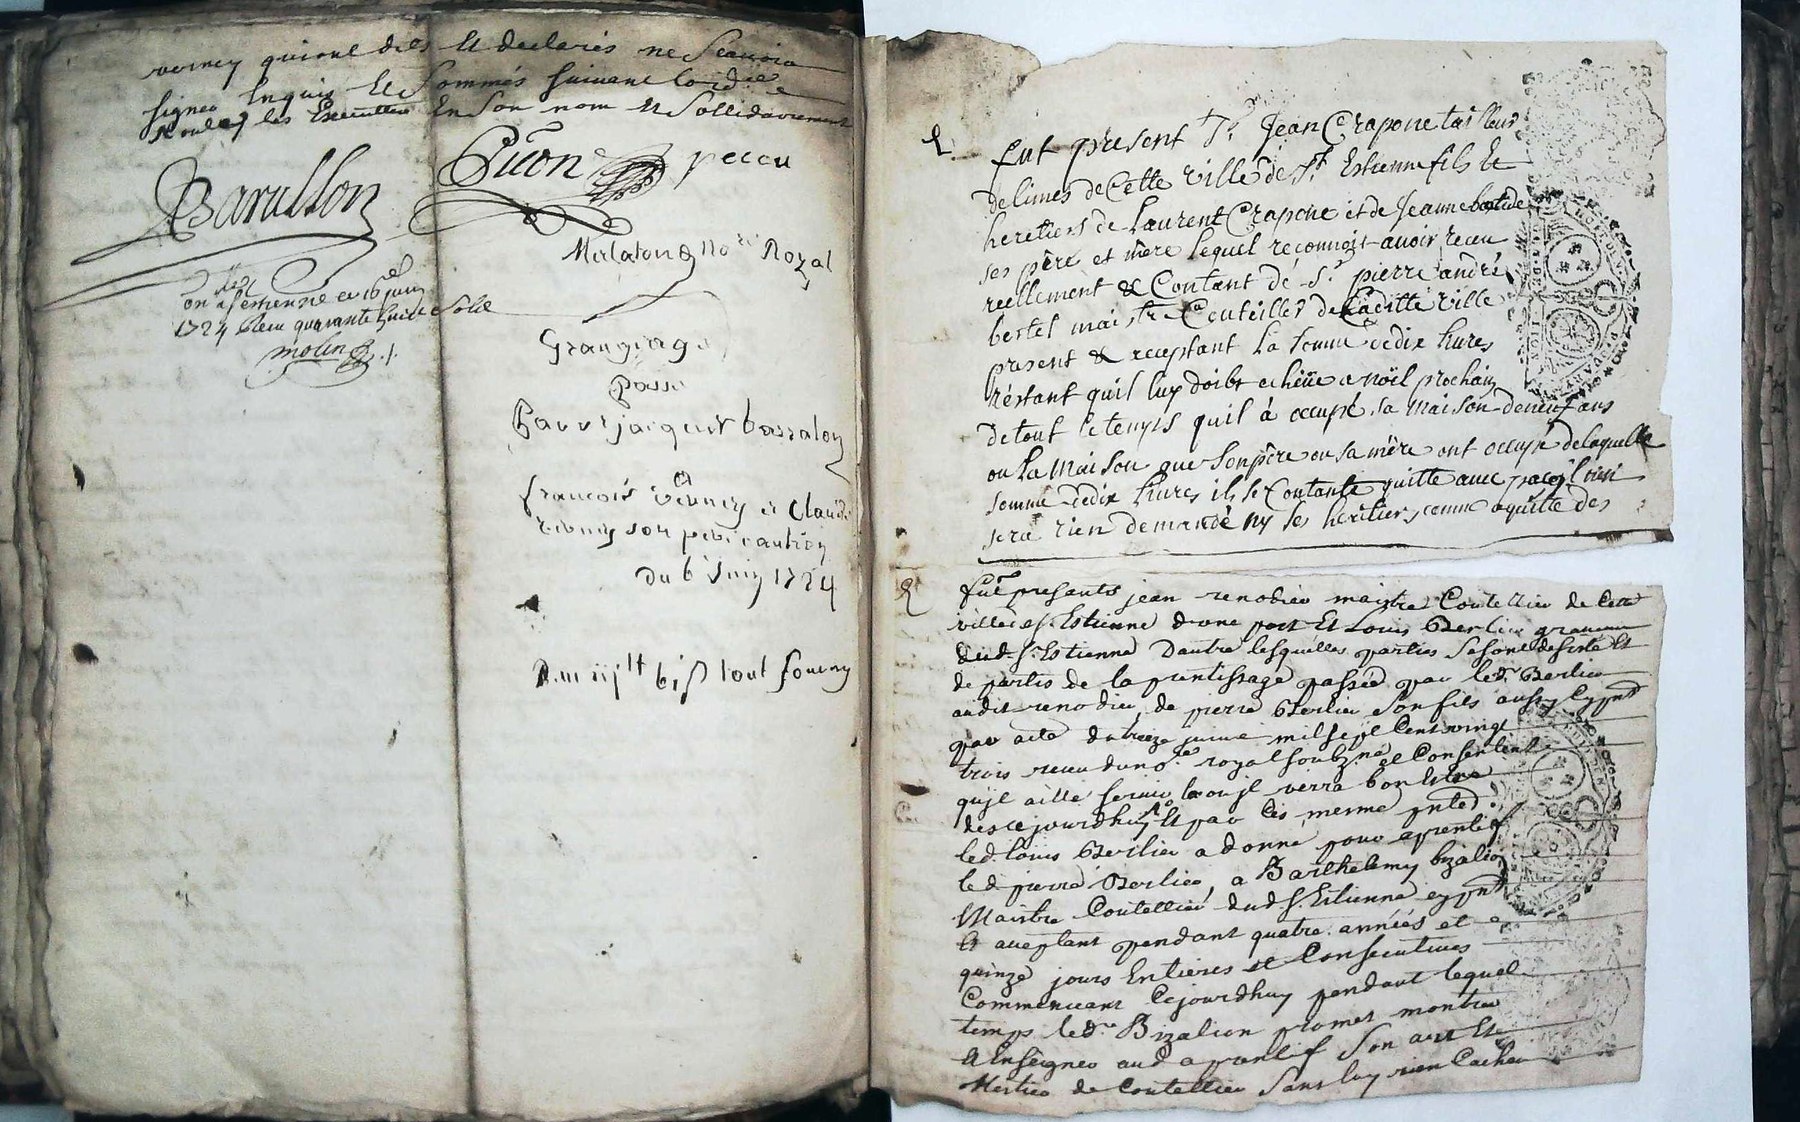 verney qui ont dits Et declarés ne scavoir
signer Enquis Et sommés suivant lord.ce
En son nom Et Sollidairement
Barallon
Picon
receu
Malaton No.re Royal
on a St estienne ce 16 juin
1724 receu quarante huit solz
molin
Grangirage
passé
Pour Jacques barralon
Et
francois verney et Claude
verney son pere caution
du 6 Juin 1724
tout fourny
fut present Sr. Jean Crapone tailleur
delimes deCette ville de St Estienne fils Et
heretiers de Laurent Crapone et de Jeanne
ses père et mère lequel reconnoist avoir receu
reellement & Contant de Sr. pierre andré
bertel maistre Couteiller de Laditte ville
present & receptant La somme dedix livres
réstant quil luy doibt echeüe a noël prochain
detout le temps quil à occupé sa Maison deneuf ans
ou La Maison que sonpère ou sa mère ont occupé delaquelle
somme dedix livres il se Contante quitte avec pacq
sera rien demandé ny ses heritiers comme aquitte des
fut presants jean renodier maistre Coutellier de Cette
ville de St. Estienne dune part Et Louis Berlier
dud. St. Estienne Dautre lesquelles parties se sont desisté Et
de partis de la prentissage passée par led. Berlier
audit renodier de pierre Berlier son fils aussy Cypnt
par acte du treze mil sept Cent vingt
trois receu du no.re royal soubz.né et Consentent
quil aille servir la ou jl verra bon Estre
des cejourdhuy Et par ces mesme pnted.
led. louis Berlier a donné pour aprentif
led. pierre Berlier a Barthelemy bizalion
Maistre Coutellier dud St. Estienne cy pnt
Et aceptant pendant quatre années et
quinze jours Entieres et Consecutives
Commencant Cejourdhuy pendant lequel
temps led. Bizalion promet montrer
Et Enseigner aud aprentif Son art Et
Mestier de Coutellier Sans luy rien Cacher